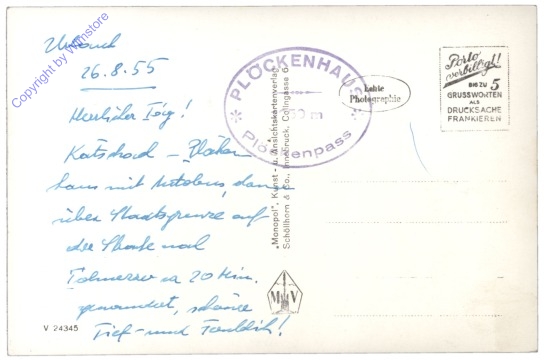 Copyright by Wienstore
Urlaub
26.8.55
Herzlicher Tag!
Kötschach – Plöcken
haus mit Autobus, dann
über Staatsgrenze auf
der Straße nach
ca 20 Min.
gewandert, schöne
Tief- und Fernblick!
V. 24345
PLÖCKENHAUS
m
Plöckenpass
„Monopol", Kunst- u. Ansichtskartenverlag
Schöllhorn & Co., Innsbruck, Colingasse 6.
M V
Echte
Photographie
Porto
verbilligt!
BIS ZU 5
GRUSSWORTEN
ALS
DRUCKSACHE
FRANKIEREN